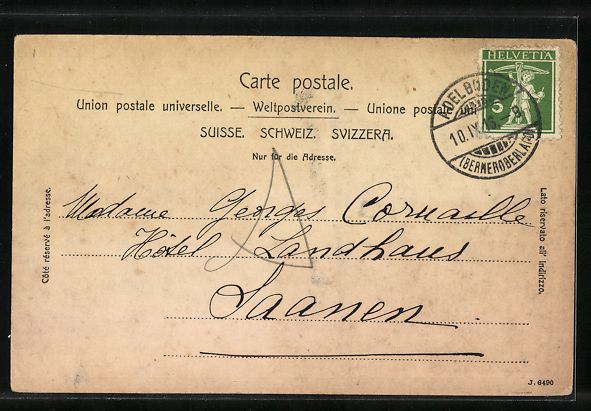 HELVETIA
5
ADELBODEN
10.IX.
(BERNEROBERLAND)
Carte postale.
Union postale universelle. — Weltpostverein. — Unione postale
SUISSE. SCHWEIZ. SVIZZERA.
Nur für die Adresse.
Côté réservé à l'adresse.
Lato riservato all' indirizzo.
Madame Georges Cornaille
Hôtel Landhaus
Saanen
J. 6490